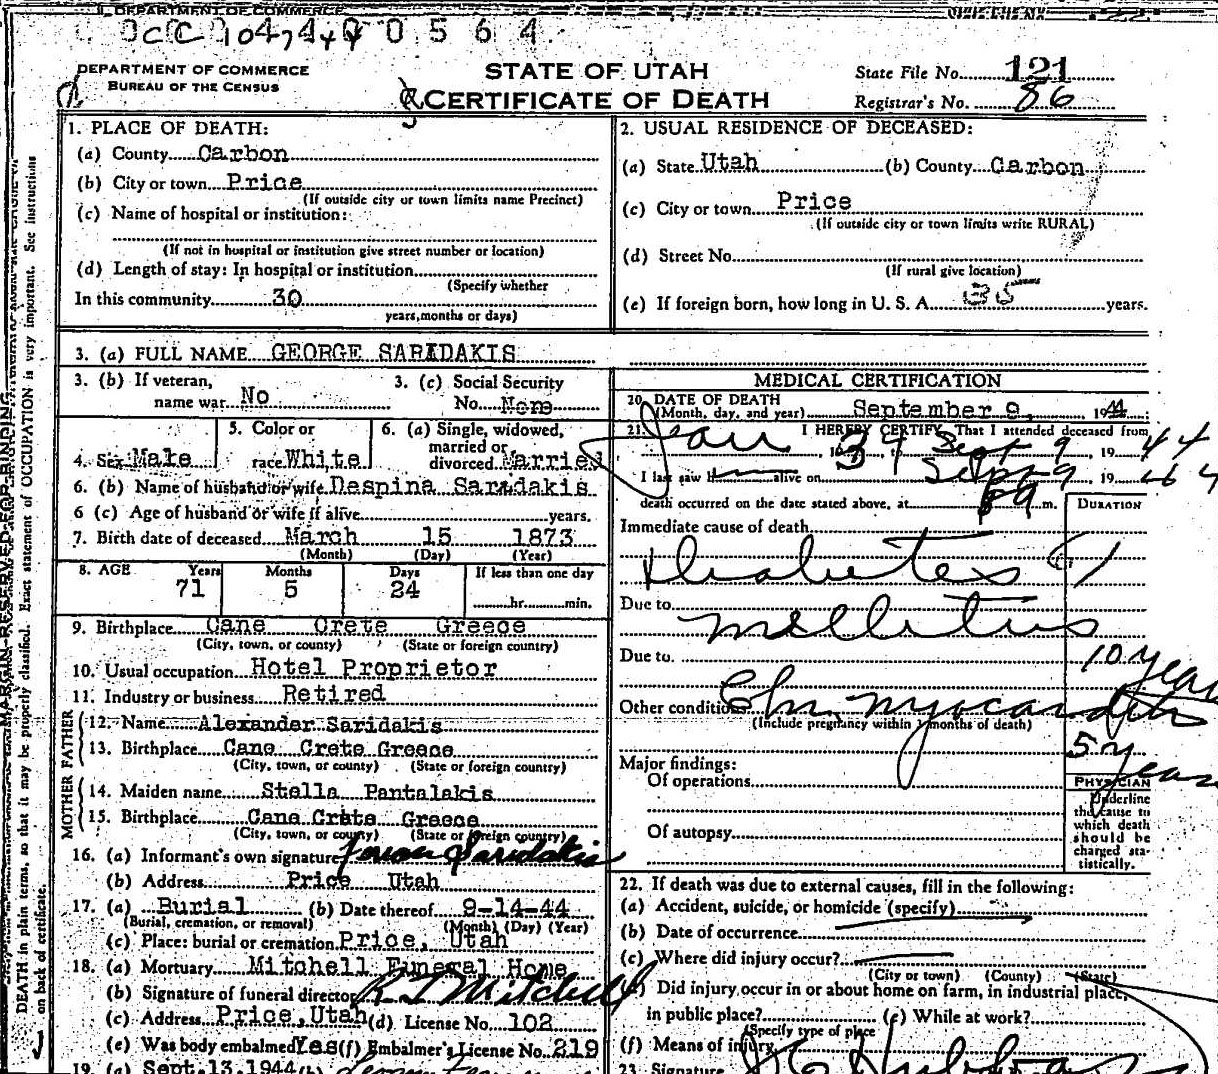 DEPARTMENT OF COMMERCE
0 5 6 4
DEPARTMENT OF COMMERCE
BUREAU OF THE CENSUS
STATE OF UTAH
CERTIFICATE OF DEATH
State File No. 121
Registrar's No. 86
1. PLACE OF DEATH:
(a) County Carbon
(b) City or town Price
(If outside city or town limits name Precinct)
(c) Name of hospital or institution:
(If not in hospital or institution give street number or location)
(d) Length of stay: In hospital or institution
(Specify whether
In this community 30
years, months or days)
2. USUAL RESIDENCE OF DECEASED:
(a) State Utah (b) County Carbon
(c) City or town Price
(If outside city or town limits write RURAL)
(d) Street No.
(If rural give location)
(e) If foreign born, how long in U. S. A. 35 years.
3. (a) FULL NAME GEORGE SARIDAKIS
3. (b) If veteran, name war No
3. (c) Social Security No. None
4. Sex Male
5. Color or race White
6. (a) Single, widowed, married or divorced Married
6. (b) Name of husband or wife Despina Saradakis
6 (c) Age of husband or wife if alive years.
7. Birth date of deceased March 15 1873
(Month) (Day) (Year)
8. AGE Years Months Days If less than one day
71 5 24 hr. min.
9. Birthplace Cane Crete Greece
(City, town, or county) (State or foreign country)
10. Usual occupation Hotel Proprietor
11. Industry or business Retired
FATHER
12. Name Alexander Saridakis
13. Birthplace Cane Crete Greece
(City, town, or county) (State or foreign country)
MOTHER
14. Maiden name Stella Pantalakis
15. Birthplace Cane Crete Greece
(City, town, or county) (State or foreign country)
16. (a) Informant's own signature Saridakis
(b) Address Price Utah
17. (a) Burial (b) Date thereof 9-14-44
(Burial, cremation, or removal) (Month) (Day) (Year)
(c) Place: burial or cremation Price, Utah
18. (a) Mortuary Mitchell Funeral Home
(b) Signature of funeral director Mitchell
(c) Address Price, Utah (d) License No. 102
(e) Was body embalmed Yes (f) Embalmer's License No. 219
19. (a) Sept. 13, 1944 (b)
MEDICAL CERTIFICATION
20. DATE OF DEATH
(Month, day, and year) September 9, 1944
21. I HEREBY CERTIFY, That I attended deceased from
Jan 39, to Sept 9, 1944
I last saw h alive on Sept 9, 1944
death occurred on the date stated above, at m.
DURATION
Immediate cause of death
Diabetes
Due to mellitus
Due to 10 years
Other conditions Chr. myocarditis
(Include pregnancy within 3 months of death)
5 years
Major findings:
Of operations
Of autopsy
PHYSICIAN
Underline
the cause to
which death
should be
charged sta-
tistically.
22. If death was due to external causes, fill in the following:
(a) Accident, suicide, or homicide (specify)
(b) Date of occurrence
(c) Where did injury occur?
(City or town) (County) (State)
Did injury occur in or about home on farm, in industrial place,
in public place? (e) While at work?
(Specify type of place
(f) Means of injury
23. Signature
DEATH in plain terms, so that it may be properly classified. Exact statement of OCCUPATION is very important. See instructions
on back of certificate.